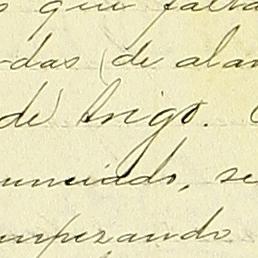 que falta
das (de alar
de) trigo.
unciado, se
emperando